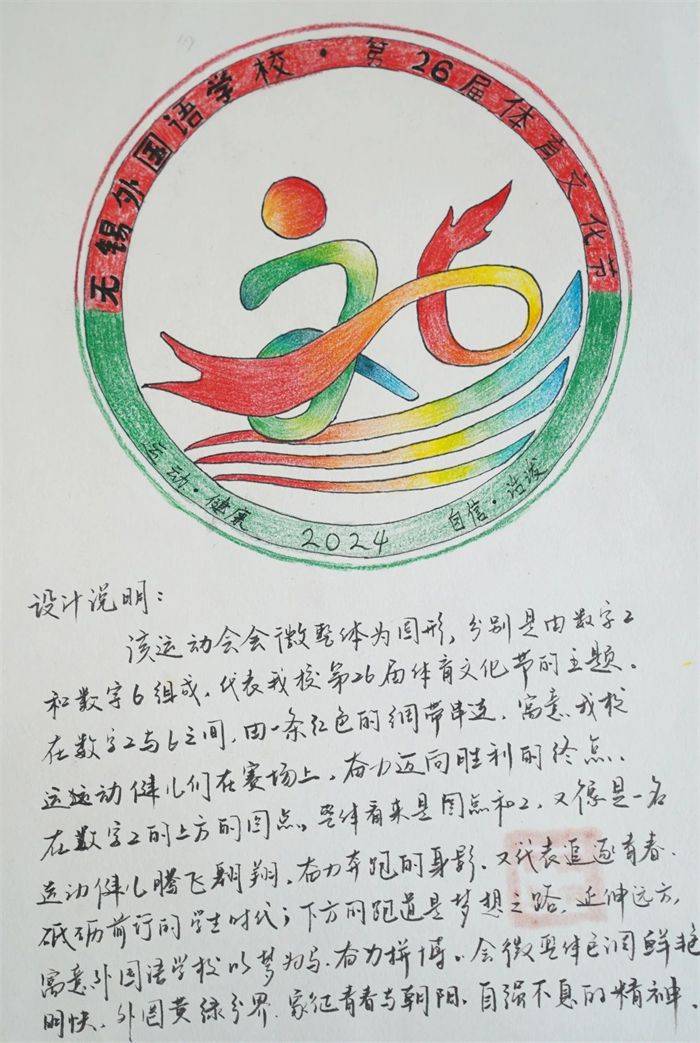 无锡外国语学校·第26届体育文化节
运动·健康
2024
自信·活泼
设计说明：
该运动会会徽整体为圆形，分别是由数字2
和数字6组成，代表我校第26届体育文化节的主题。
在数字2与6之间，由一条红色的绸带串连，寓意我校
运动健儿们在赛场上，奋力迈向胜利的终点、
在数字2的上方的圆点。整体看来是圆点和2，又像是一名
运动健儿腾飞翱翔，奋力奔跑的身影，又代表追逐青春、
砥砺前行的学生时代；下方的跑道是梦想之路，延伸远方，
寓意外国语学校以梦为马、奋力拼搏。会徽整体色调鲜艳
明快，外圆黄绿分界，象征青春与朝阳，自强不息的精神。